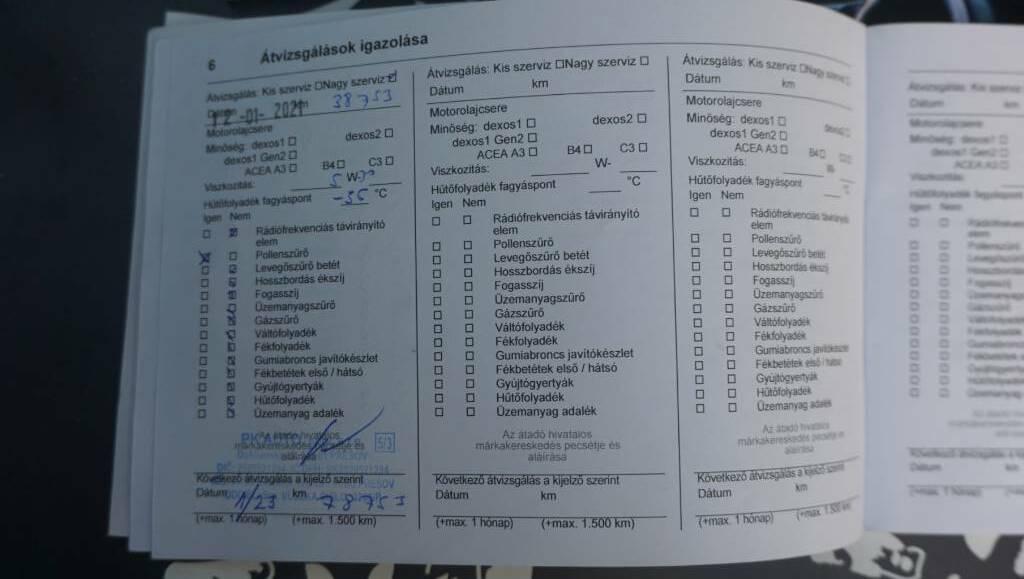 6 Átvizsgálások igazolása
Átvizsgálás: Kis szerviz □Nagy szerviz
12 -01- 2021 38753
Motorolajcsere
Minőség: dexos1 □ dexos2 □
dexos1 Gen2 □
ACEA A3 □ B4 □ C3 □
Viszkozitás: 5 W-
Hűtőfolyadék fagyáspont -35 °C
Igen Nem
Rádiófrekvenciás távirányító
elem
Pollenszűrő
Levegőszűrő betét
Hosszbordás ékszíj
Fogasszíj
Üzemanyagszűrő
Gázszűrő
Váltófolyadék
Fékfolyadék
Gumiabroncs javítókészlet
Fékbetétek első / hátsó
Gyújtógyertyák
Hűtőfolyadék
Üzemanyag adalék
Az átadó hivatalos
márkakereskedés pecsétje és
aláírása
5/3
Következő átvizsgálás a kijelző szerint
Dátum 1/23 km 78753
(+max. 1 hónap) (+max. 1.500 km)
Átvizsgálás: Kis szerviz □Nagy szerviz □
Dátum km
Motorolajcsere
Minőség: dexos1 □ dexos2 □
dexos1 Gen2 □
ACEA A3 □ B4 □ C3 □
Viszkozitás: W-
Hűtőfolyadék fagyáspont °C
Igen Nem
Rádiófrekvenciás távirányító
elem
Pollenszűrő
Levegőszűrő betét
Hosszbordás ékszíj
Fogasszíj
Üzemanyagszűrő
Gázszűrő
Váltófolyadék
Fékfolyadék
Gumiabroncs javítókészlet
Fékbetétek első / hátsó
Gyújtógyertyák
Hűtőfolyadék
Üzemanyag adalék
Az átadó hivatalos
márkakereskedés pecsétje és
aláírása
Következő átvizsgálás a kijelző szerint
Dátum km
(+max. 1 hónap) (+max. 1.500 km)
Átvizsgálás: Kis szerviz □Nagy szerviz □
Dátum km
Motorolajcsere
Minőség: dexos1 □ dexos2 □
dexos1 Gen2 □
ACEA A3 □ B4 □ C3 □
Viszkozitás: W-
Hűtőfolyadék fagyáspont °C
Igen Nem
Rádiófrekvenciás távirányító
elem
Pollenszűrő
Levegőszűrő betét
Hosszbordás ékszíj
Fogasszíj
Üzemanyagszűrő
Gázszűrő
Váltófolyadék
Fékfolyadék
Gumiabroncs javítókészlet
Fékbetétek első / hátsó
Gyújtógyertyák
Hűtőfolyadék
Üzemanyag adalék
Az átadó hivatalos
márkakereskedés pecsétje és
aláírása
Következő átvizsgálás a kijelző szerint
Dátum km
(+max. 1 hónap) (+max. 1.500 km)